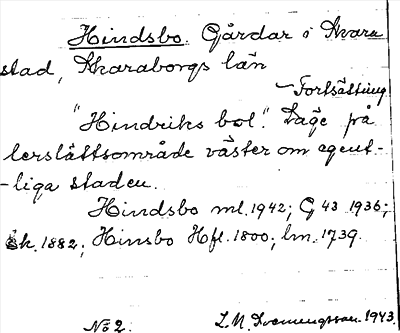 Hindsbo. Gårdar i Skara
stad, Skaraborgs län
Fortsättning
"Hindriks bol". Läge på
lerslättsområde väster om egent-
-liga staden.
Hindsbo ml. 1942; G 43 1936;
Ek. 1882; Hinsbo Hfl. 1800; lm. 1739.
No 2. L. M. 1943